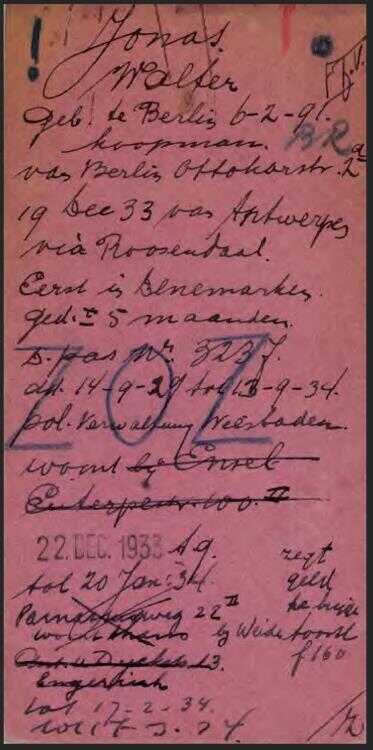 Jonas.
Walter
geb. te Berlin 6-2-91.
koopman. BR
van Berlin Ottokarstr. 2a
19 Dec 33 van Antwerpen
via Roosendaal.
Eerst in Denemarken.
ged. ± 5 maanden.
D. pas Nr. 3237.
dd. 14-9-29 tot 13-9-34.
pol. Verwaltung Wiesbaden.
ZOZ
woont bij Ensel
Euterpestr. 100 II
22 DEC. 1933 Ag.
tot 20 Jan: 34.
zegt
geld
Parnassusweg 22 II
woont thans bij Weide
toont
f 160
13.
tot 17-2-34.